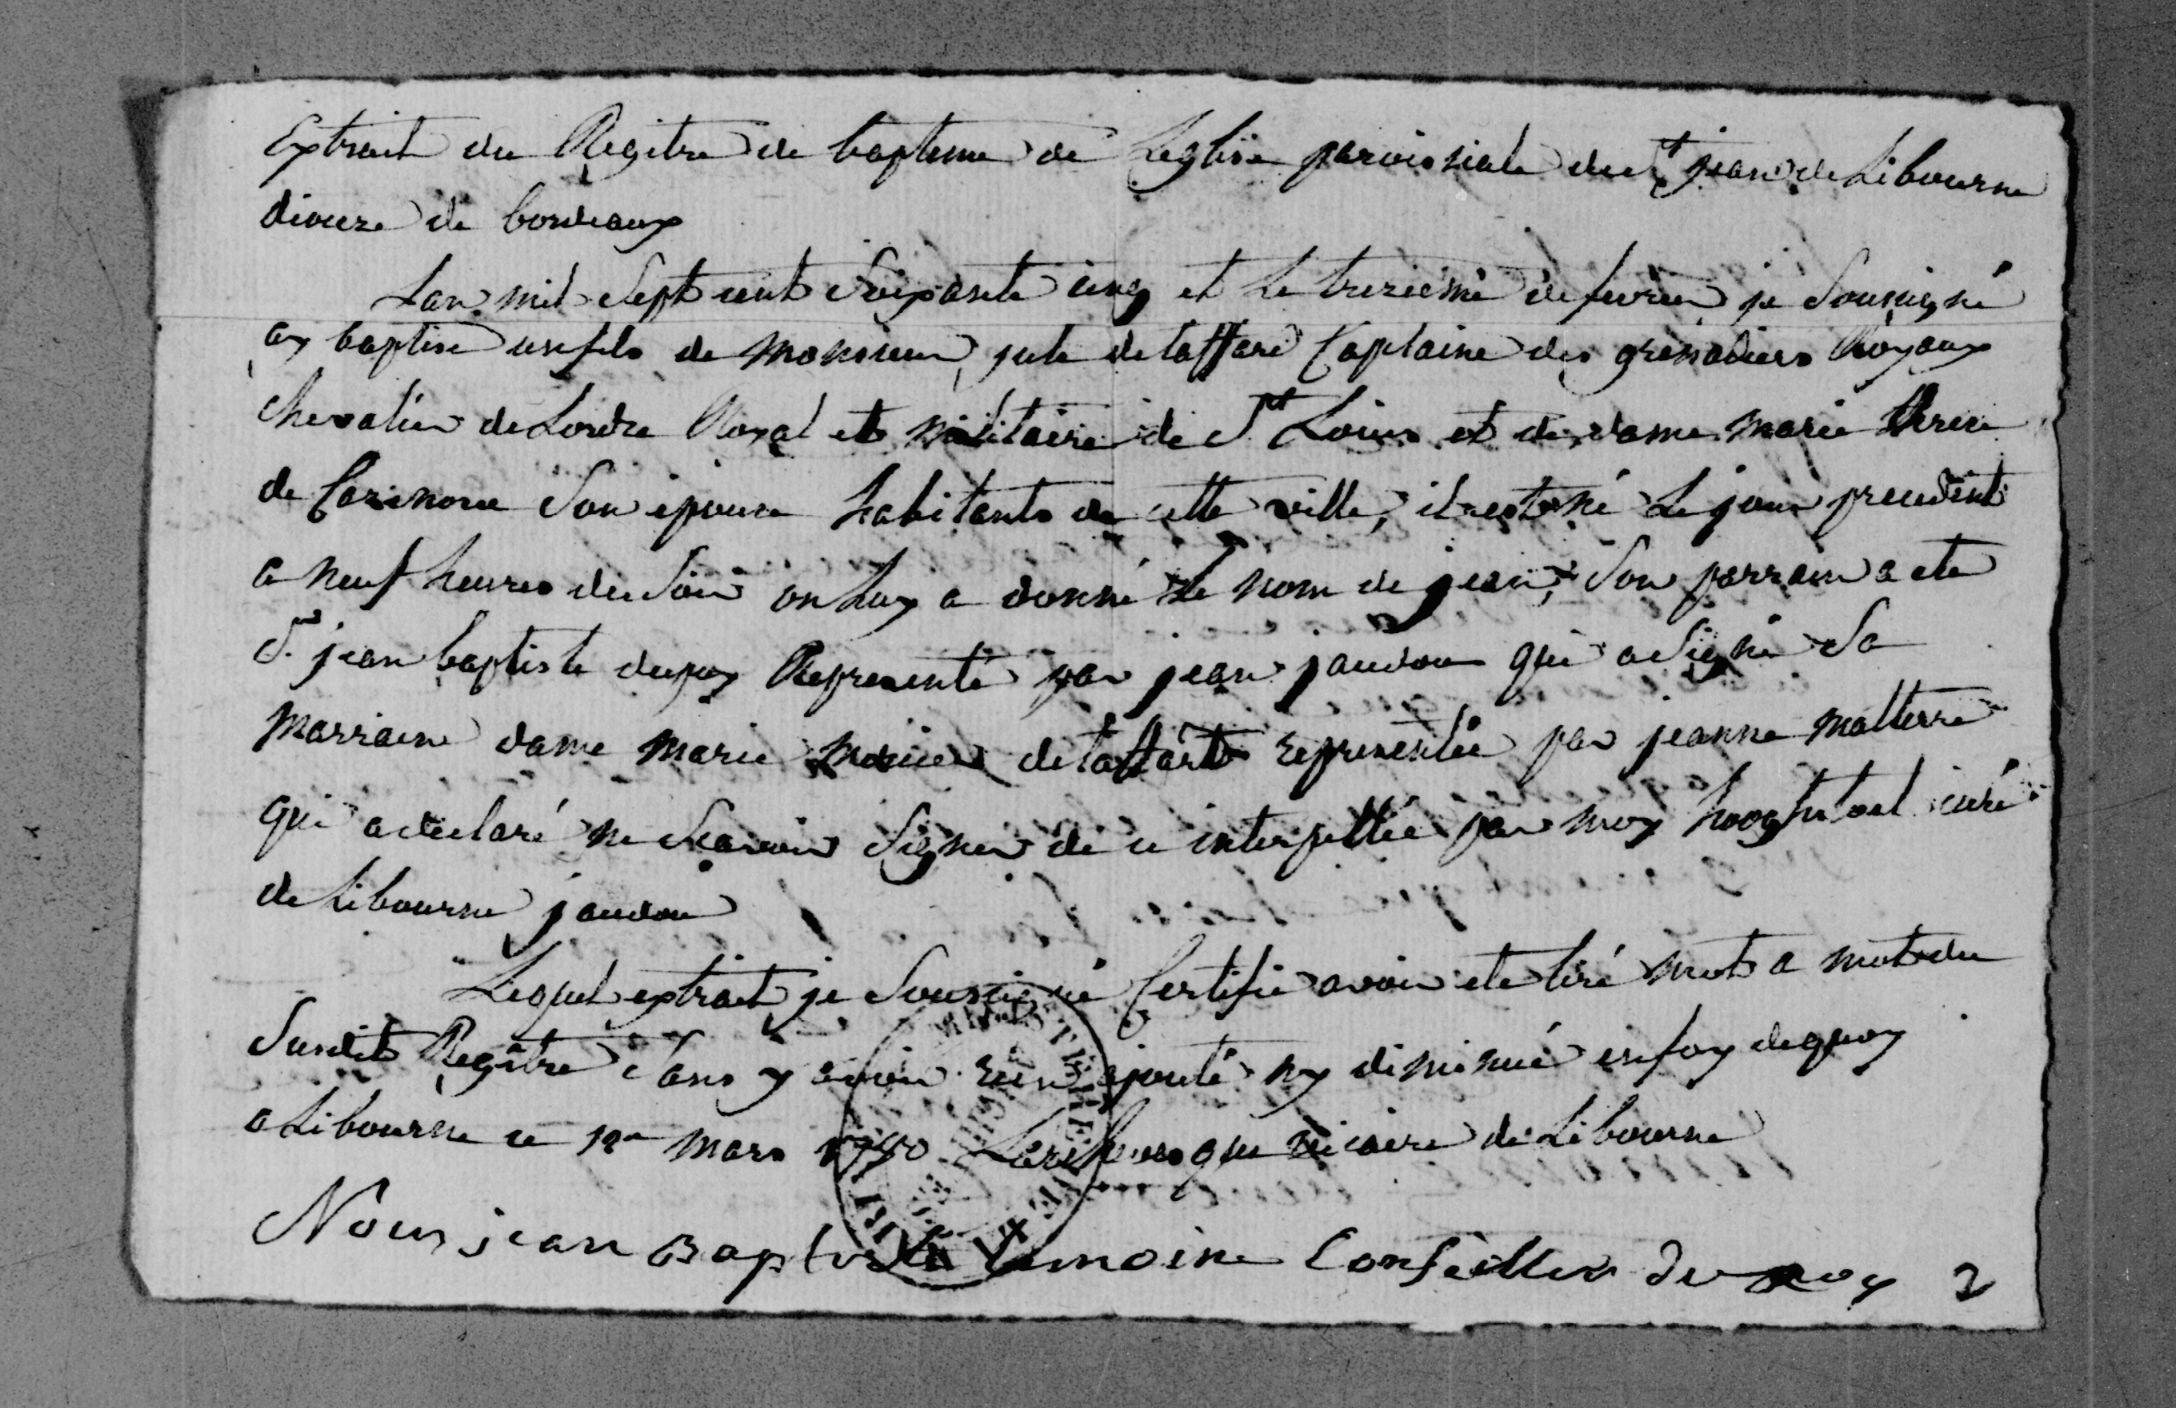 Extrait du Regitre de bapteme de Leglise paroissiale de St jean de Libourne
dioceze de bordeaux
Lan mil sept cent soixante cinq et le treziéme de fevrier je soussigné
ay baptisé un fils de monsieur, jule de taffard Captaine des grenadiers Royaux
Chevalier de Lordre Royal et militaire de St Louis et de dame marie therese
de son epouse habitants de cette ville, il est né le jour precedent
a neuf heures du soir on luy a donné le nom de jean, son parrain a ete
Sr jean baptiste dupuy Representé par jean jaudou qui a signé sa
marraine dame marie de taffard representée par jeanne matterre
qui a declaré ne scavoir signer de ce interpellée par moy curé
de Libourne jaudou
Lequel extrait je soussigné Certifie avoir ete tiré mot a mot du
susdit Regitre sans y avoir rien ajouté ny diminué en foy de quoy
a Libourne ce mars 1780 Larchevesque vicaire de Libourne
Nous jean Baptiste Lemoine Conseiller du Roy 2
MINISTERE
GUERRE